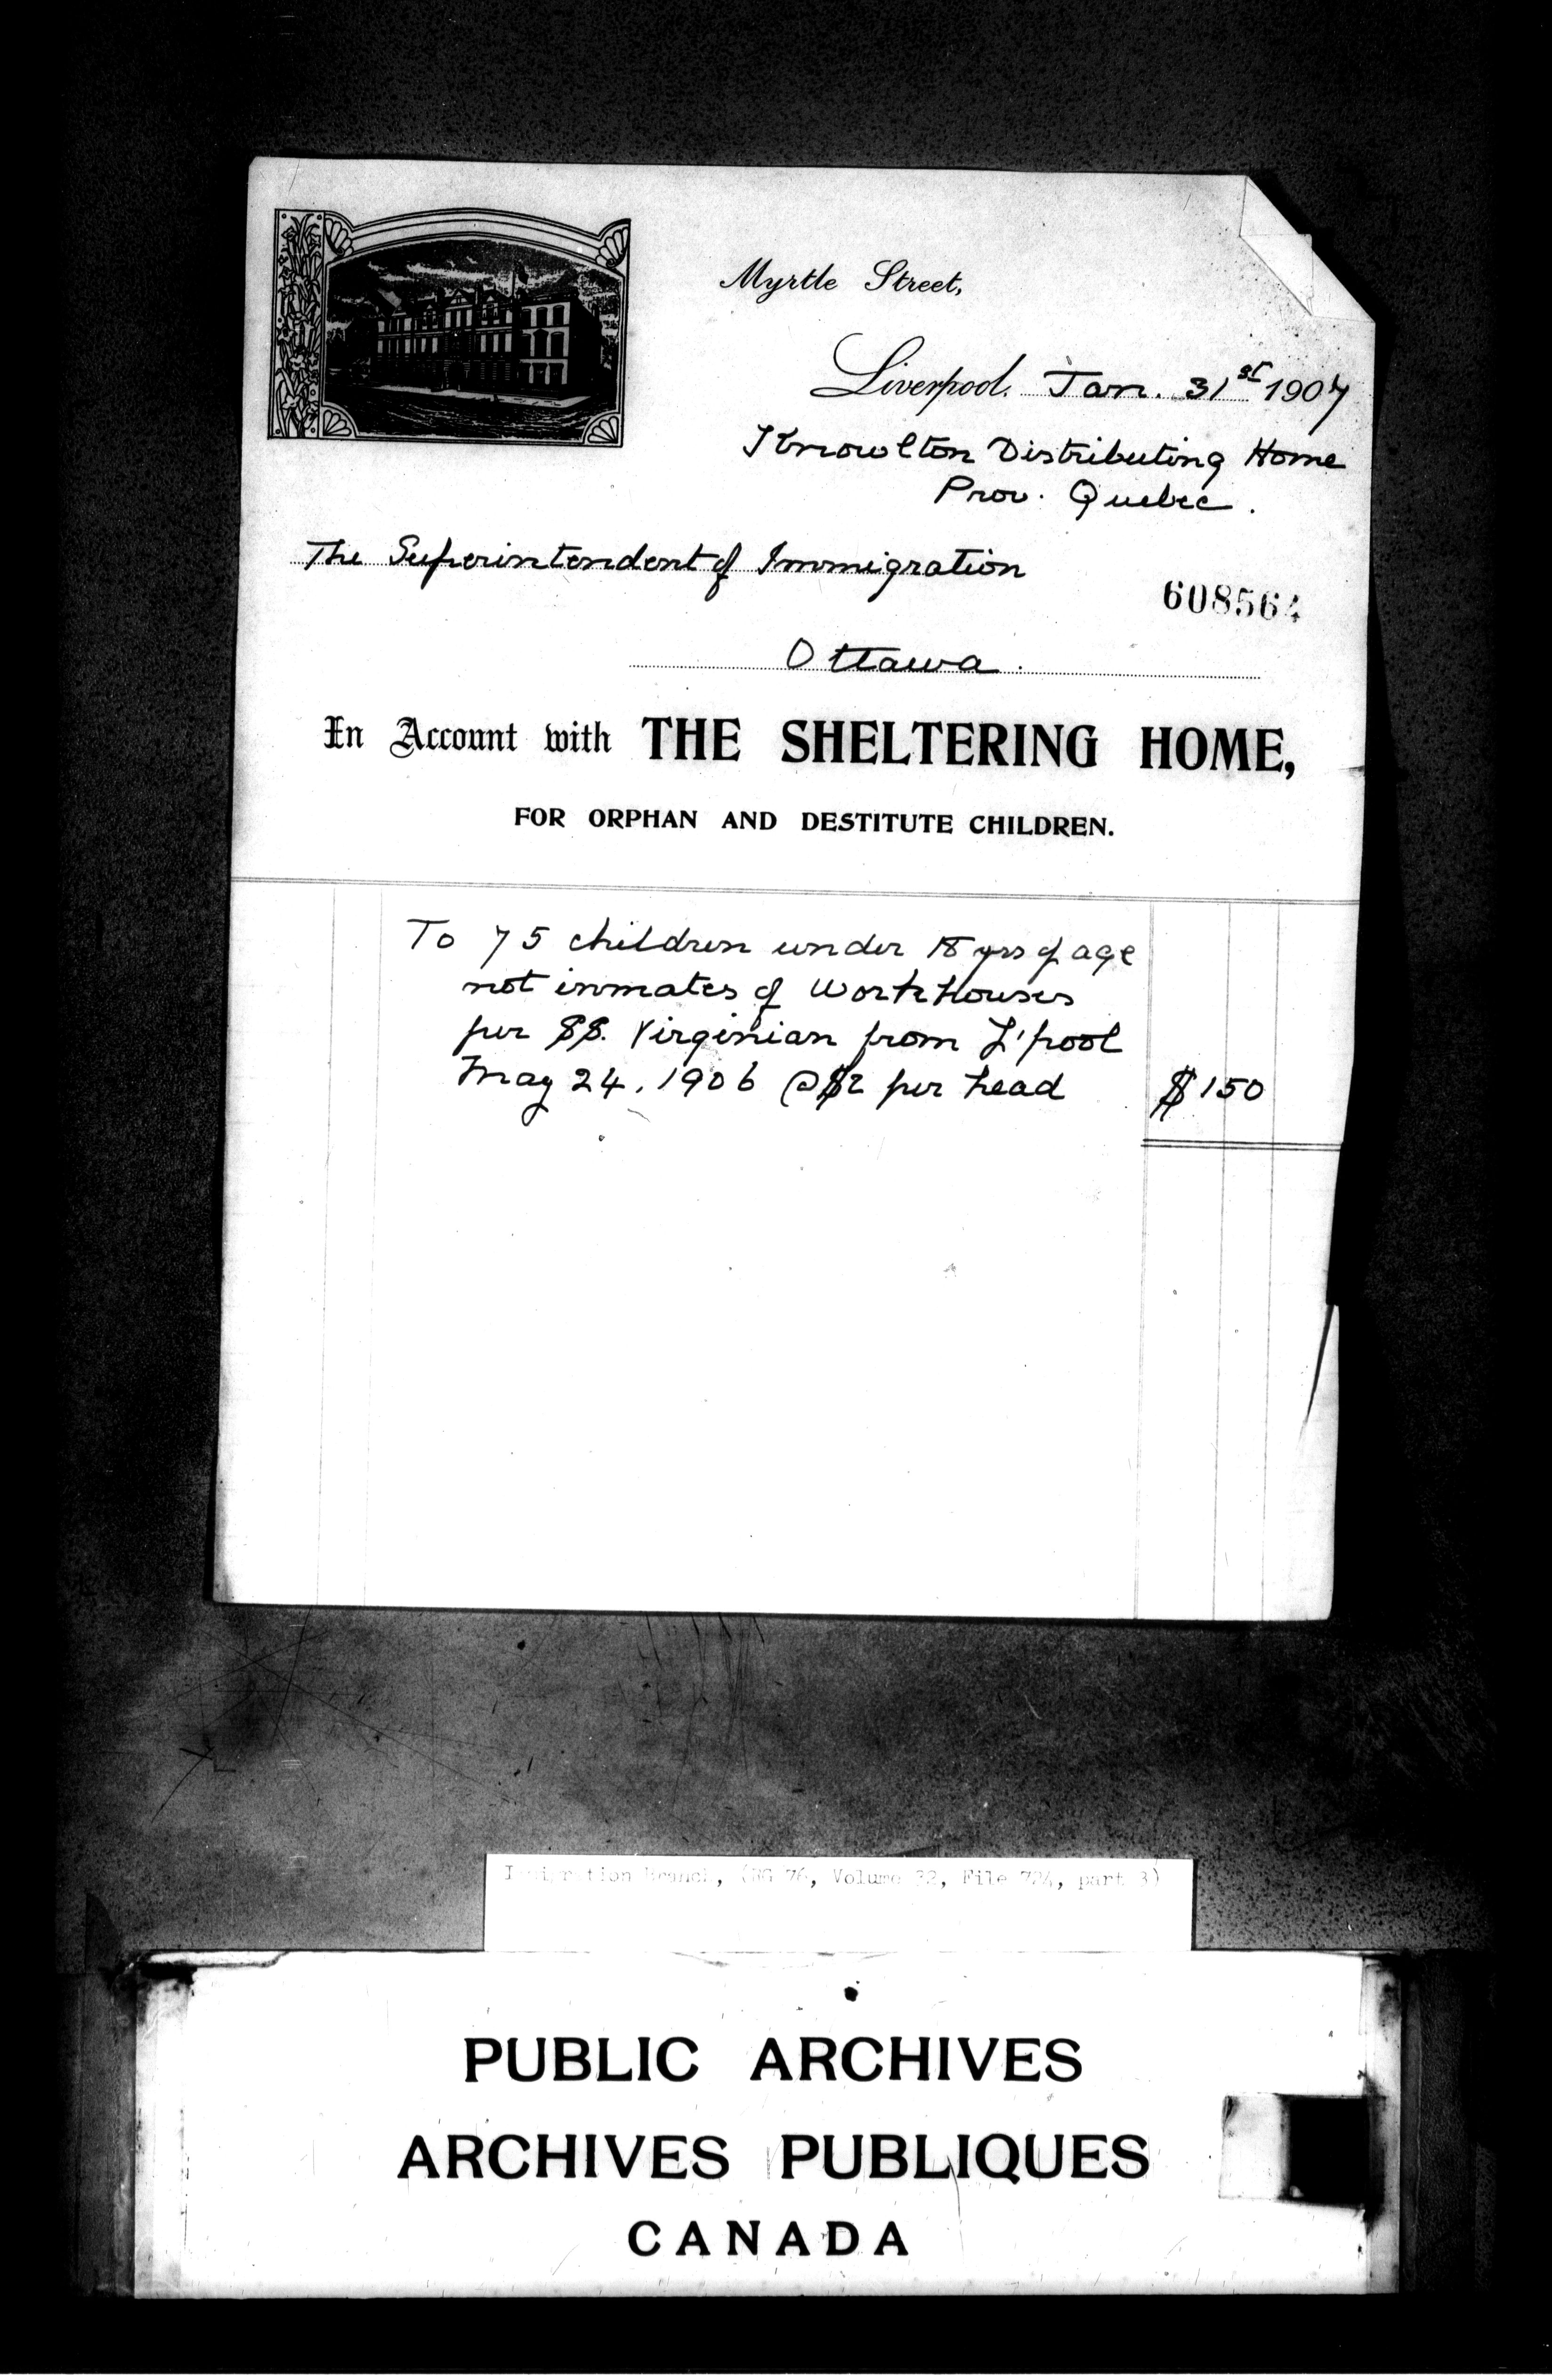 Myrtle Street,
Liverpool. Jan. 31st 1907
Knowlton Distributing Home
Prov. Quebec.
The Superintendent of Immigration
608564
Ottawa.
In Account with THE SHELTERING HOME,
FOR ORPHAN AND DESTITUTE CHILDREN.
To 75 children under 18 yrs of age
not inmates of Workhouses
per SS. Virginian from L'pool
May 24, 1906 @ $2 per head $150
Immigration Branch, (RG 76, Volume 32, File 724, part 3)
PUBLIC ARCHIVES
ARCHIVES PUBLIQUES
CANADA